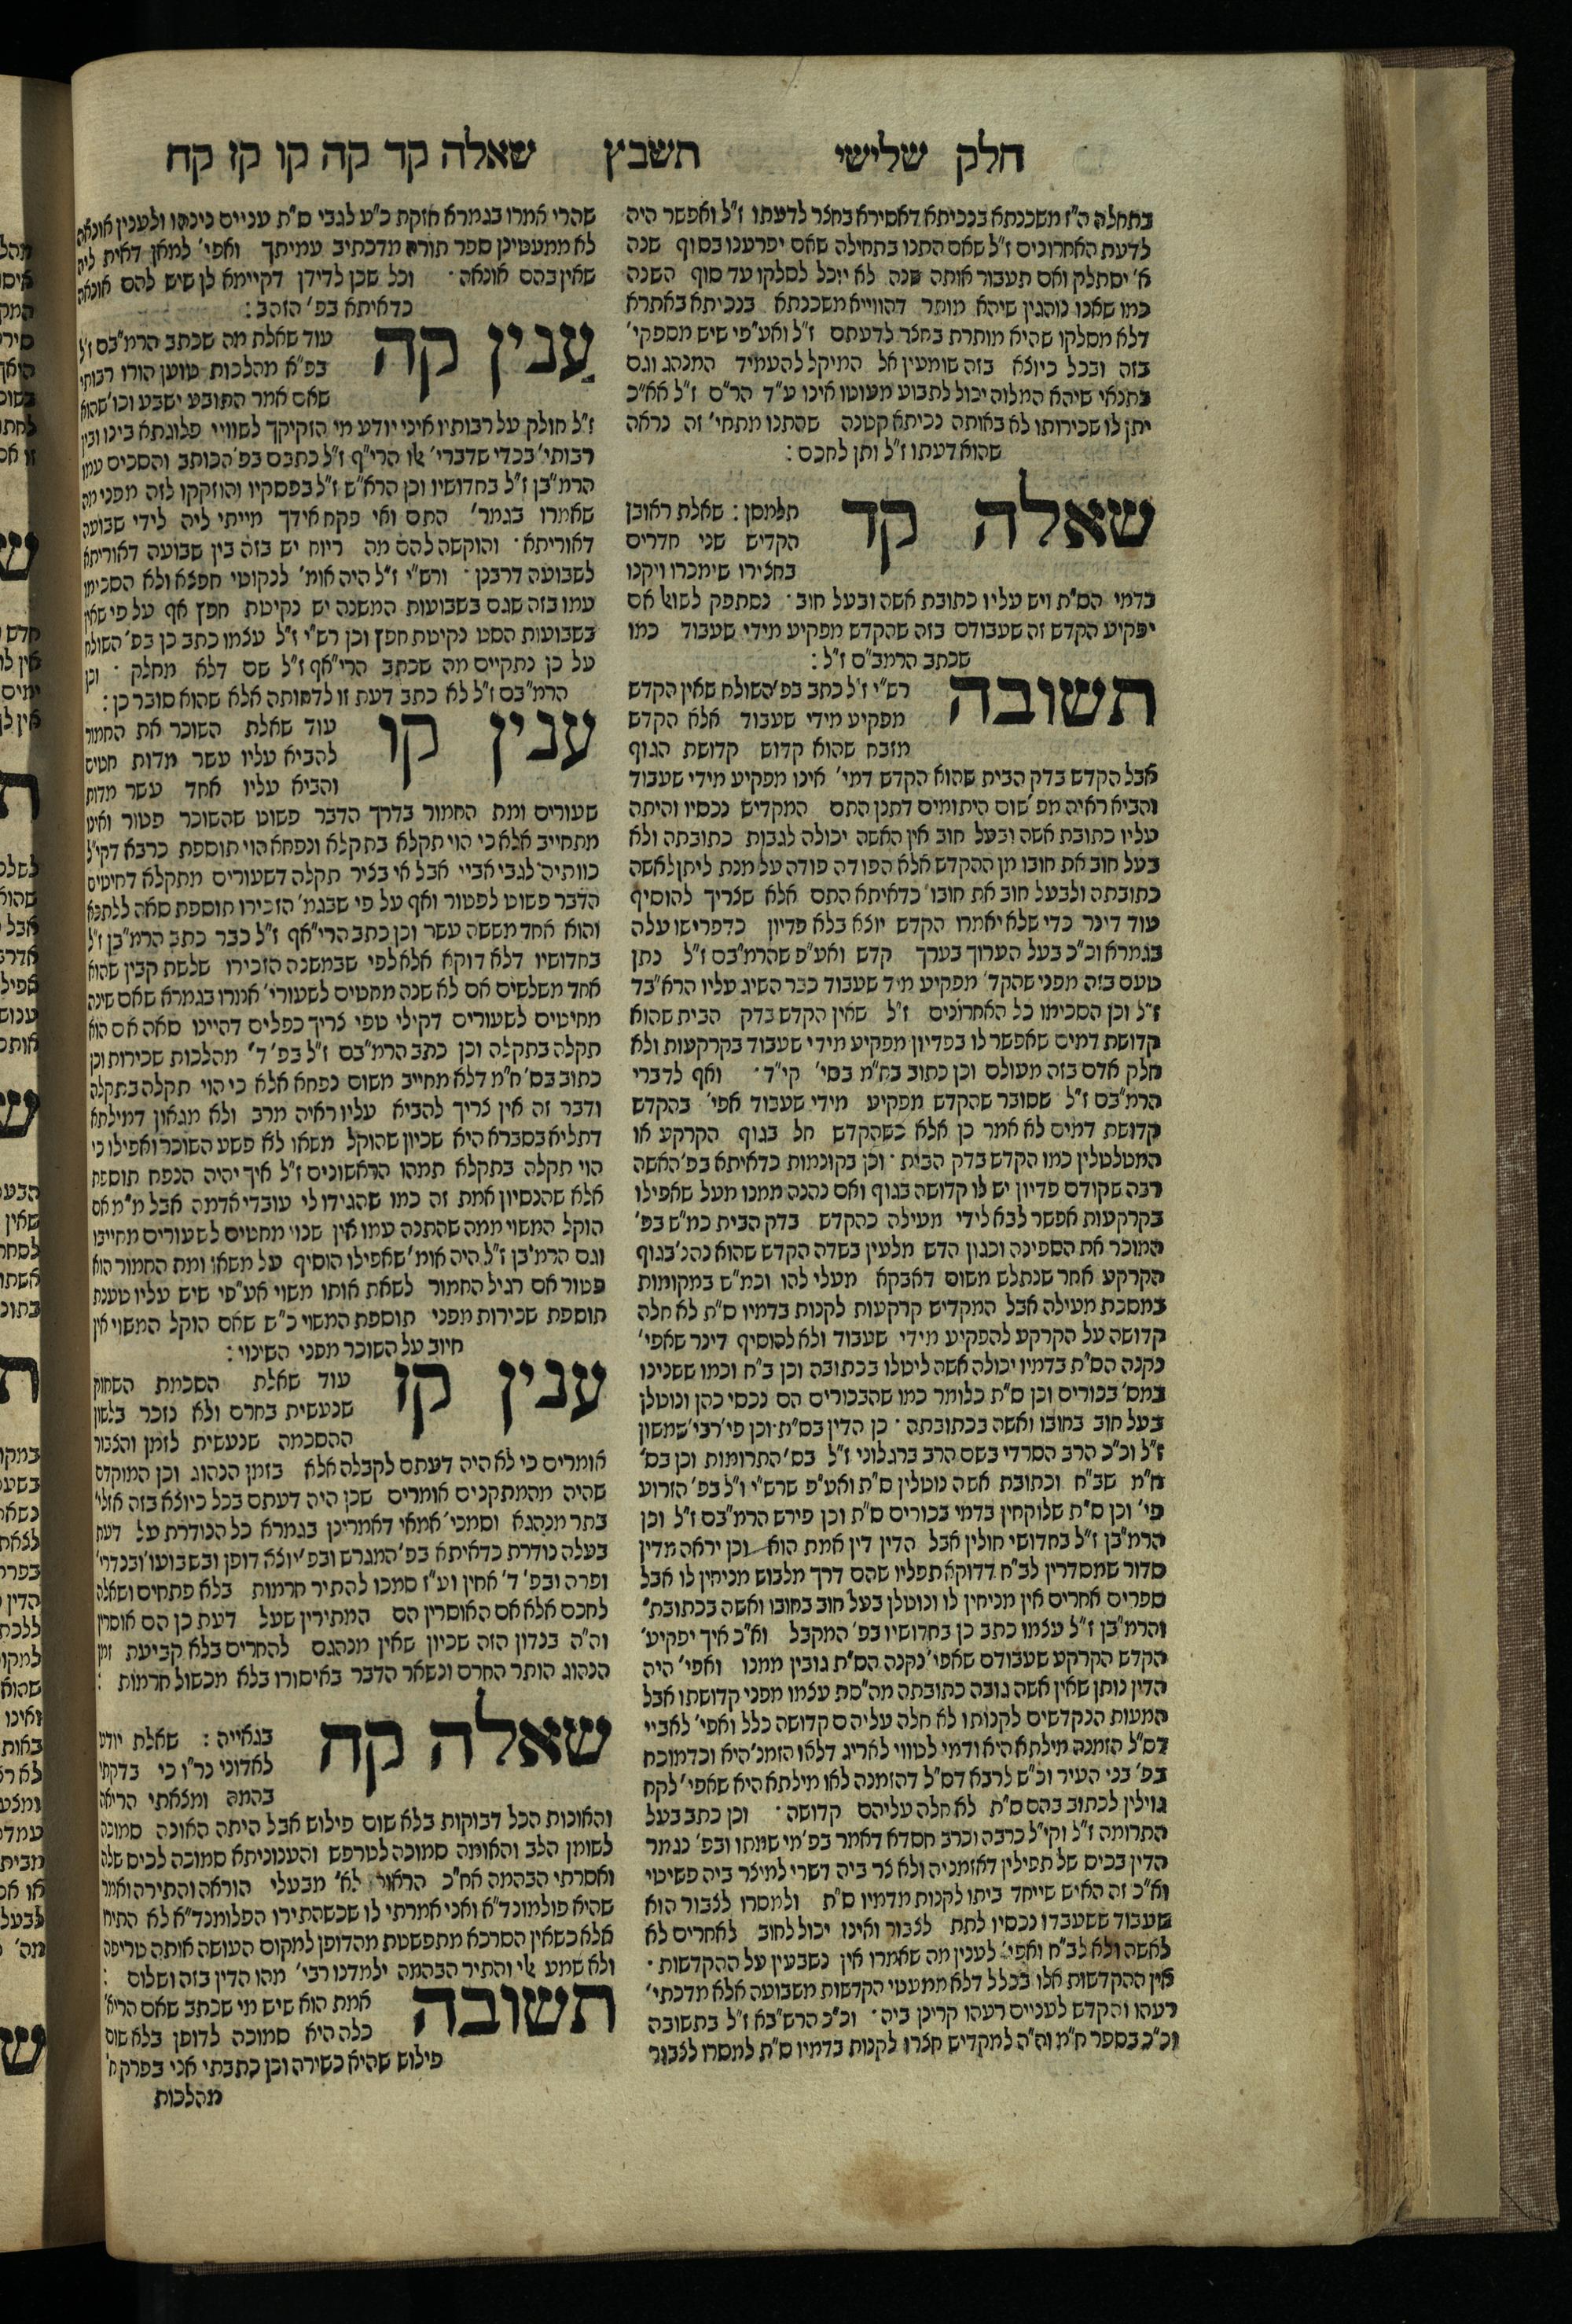 חלק שלישי תשבץ שאלה קד קה קו קז קח
בתחלה ה"ז משכנתא בנכיתא דאסירא בחצר לדעתו ז"ל ואפשר היה
לדעת האחרונים ז"ל שאם התנו בתחילה שאם יפרענו בסוף שנה
א' יסתלק ואם תעבור אותה שנה לא יוכל לסלקו עד סוף השנה
כמו שאנו נוהגין שיהא מותר דהווייא משכנתא בנכיתא באתרא
דלא מסלקו שהיא מותרת בחצר לדעתם ז"ל ואע"פי שיש מספקי'
בזה ובכל כיוצא בזה שומעין אל המיקל להעמיד המנהג וגם
בתנאי שיהא המלוה יכול לתבוע מעותו אינו ע"ד הר"ם ז"ל אא"כ
יתן לו שכירותו לא באותה נכיתא קטנה שהתנו מתחי' זה נראה
שהוא דעתו ז"ל ותן לחכם :
שאלה קד
תלמסן : שאלת ראובן
הקדיש שני חדרים
בחצירו שימכרו ויקנו
בדמי הס"ת ויש עליו כתובת אשה ובעל חוב · נסתפק לשואל אם
יפקיע הקדש זה שעבודם בזה שהקדש מפקיע מידי שעבוד כמו
שכתב הרמב"ם ז"ל :
תשובה
רש"י ז"ל כתב בפ' השולח שאין הקדש
מפקיע מידי שעבוד אלא הקדש
מזבח שהוא קדוש קדושת הגוף
אבל הקדש בדק הבית שהוא הקדש דמי' אינו מפקיע מידי שעבוד
והביא ראיה מפ' שום היתומים דתנן התם המקדיש נכסיו והיתה
עליו כתובת אשה ובעל חוב אין האשה יכולה לגבות כתובתה ולא
בעל חוב את חובו מן ההקדש אלא הפודה פודה על מנת ליתן לאשה
כתובתה ולבעל חוב את חובו' כדאיתא התם אלא שצריך להוסיף
עוד דינר כדי שלא יאמרו הקדש יוצא בלא פדיון כדפרישו עלה
בגמרא וכ"כ בעל הערוך בערך קדש ואע"פ שהרמ"בם ז"ל נתן
טעם בזה מפני שהקד' מפקיע מיד שעבוד כבר השיג עליו הרא"בד
ז"ל וכן הסכימו כל האחרונים ז"ל שאין הקדש בדק הבית שהוא
קדושת דמים שאפשר לו בפדיון מפקיע מידי שעבוד בקרקעות ולא
חלק אדם בזה מעולם וכן כתוב בח"מ בסי' קי"ד · ואף לדברי
הרמ"בם ז"ל שסובר שהקדש מפקיע מידי שעבוד אפי' בהקדש
קדושת דמים לא אמר כן אלא כשהקדש חל בגוף הקרקע או
המטלטלין כמו הקדש בדק הבית · וכן בקונמות כדאיתא בפ' האשה
רבה שקודם פדיון יש לו קדושה בגוף ואם נהנה ממנו מעל שאפילו
בקרקעות אפשר לבא לידי מעילה כהקדש בדק הבית כמ"ש בפ'
המוכר את הספינה וכגון הדש מלעין בשדה הקדש שהוא נהנ' בגוף
הקרקע אחר שנתלש משום דאבקא מעלי להו וכמ"ש במקומות
במסכת מעילה אבל המקדיש קרקעות לקנות בדמיו ס"ת לא חלה
קדושה על הקרקע להפקיע מידי שעבוד ולא להוסיף דינר שאפי'
נקנה הס"ת בדמיו יכולה אשה ליטלו בכתובה וכן ב"ח וכמו ששנינו
במס' בכורים וכן ס"ת כלומר כמו שהבכורים הם נכסי כהן ונוטלן
בעל חוב בחובו ואשה בכתובתה · כן הדין בס"ת · וכן פי' רבי' שמשון
ז"ל וכ"כ הרב הסרדי בשם הרב ברגלוני ז"ל בס' התרומות וכן בס'
ח"מ שב"ח וכתובת אשה נוטלין ס"ת ואע"פ שרש"י ז"ל בפ' הזרוע
פי' וכן ס"ת שלוקחין בדמי בכורים ס"ת וכן פירש הרמ"בם ז"ל וכן
הרמ"בן ז"ל בחדושי חולין אבל הדין דין אמת הוא וכן יראה מדין
סדור שמסדרין לב"ח דדוקא תפליו שהם דרך מלבוש מניחין לו אבל
ספרים אחרים אין מניחין לו ונוטלן בעל חוב בחובו ואשה בכתובת'
והרמ"בן ז"ל עצמו כתב כן בחדושיו בפ' המקבל וא"כ איך יפקיע'
הקדש הקרקע שעבודם שאפי' נקנה הס"ת גובין ממנו ואפי' היה
הדין נותן שאין אשה גובה כתובתה מה"סת עצמו מפני קדושתו אבל
המעות הנקדשים לקנותו לא חלה עליהם קדושה כלל ואפי' לאביי
דס"ל הזמנה מילתא היא ודמי לטווי לאריג דלאו הזמנ' היא וכדמוכח
בפ' בני העיר וכ"ש לרבא דס"ל דהזמנה לאו מילתא היא שאפי' לקח
גוילין לכתוב בהם ס"ת לא חלה עליהם קדושה · וכן כתב בעל
התרומה ז"ל וקי"ל כרבה וכרב חסדא דאמר בפ' מי שמתו ובפ' נגמר
הדין בכיס של תפילין דאזמניה ולא צר ביה דשרי למיצר ביה פשיטי
וא"כ זה האיש שייחד ביתו לקנות מדמיו ס"ת ולמסרו לצבור הוא
שעבוד ששעבדו נכסיו לתת לצבור ואינו יכול לחוב לאחרים לא
לאשה ולא לב"ח ואפי' לענין מה שאמרו אין נשבעין על ההקדשות ·
אין ההקדשות אלו בכלל דלא ממעטי הקדשות משבועה אלא מדכתי'
רעהו והקדש לעניים רעהו קרינן ביה · וכ"כ הרש"בא ז"ל בתשובה
וכ"כ בספר ח"מ וה"ה למקדיש חצרו לקנות בדמיו ס"ת למסרו לצבור
שהרי אמרו בגמרא חזקת כ"ע לגבי ס"ת עניים נינהו ולענין אונאה
לא ממעטינן ספר תורה מדכתיב עמיתך ואפי' למאן דאית ליה
שאין בהם אונאה · וכל שכן לדידן דקיימא לן שיש להם אונאה
כדאיתא בפ' הזהב :
ענין קה
עוד שאלת מה שכתב הרמ"בם ז"ל
בפ"א מהלכות טוען הורו רבותי
שאם אמר התובע ישבע וכו' שהוא
ז"ל חולק על רבותיו איני יודע מי הזקיקך לשוויי פלוגתא בינו ובין
רבותי' בכדי שדברי' אלו הרי"ף ז"ל כתבם בפ' הכותב והסכים עמו
הרמ"בן ז"ל בחדושיו וכן הרא"ש ז"ל בפסקיו והוזקקו לזה מפני מה
שאמרו בגמר' התם ואי פקח אידך מייתי ליה לידי שבועה
דאוריתא · והוקשה להם מה ריוח יש בזה בין שבועה דאוריתא
לשבועה דרבנן · ורש"י ז"ל היה אומ' לנקוטי חפצא ולא הסכימו
עמו בזה שגם בשבועות המשנה יש נקיטת חפץ אף על פי שאין
בשבועות הסט נקיטת חפץ וכן רש"י ז"ל עצמו כתב כן בפ' השולח
על כן נתקיים מה שכתב הרי"אף ז"ל שם דלא מחלק · וכן
הרמ"בם ז"ל לא כתב דעת זו לדחותה אלא שהוא סובר כן :
ענין קו
עוד שאלת השוכר את החמור
להביא עליו עשר מדות חטים
והביא עליו אחד עשר מדות
שעורים ומת החמור בדרך הדבר פשוט שהשוכר פטור ואינו
מתחייב אלא כי הוי תקלא בתקלא ונפחא הוי תוספת כרבא דקי"ל
כוותיה לגבי אביי אבל אי בציר תקלה דשעורים מתקלא דחיטים
הדבר פשוט לפטור ואף על פי שבגמ' הזכירו תוספת סאה ללתכא
והוא אחד מששה עשר וכן כתב הרי"אף ז"ל כבר כתב הרמ"בן ז"ל
בחדושיו דלא דוקא אלא לפי שבמשנה הזכירו שלשת קבין שהוא
אחד משלשים אם לא שנה מחטים לשעורי' אמרו בגמרא שאם שינה
מחיטים לשעורים דקילי טפי צריך כפלים דהיינו סאה אם הוא
תקלה בתקלה וכן כתב הרמ"בם ז"ל בפ' ד' מהלכות שכירות וכן
כתוב בס' ח"מ דלא מחייב משום נפחא אלא כי הוי תקלה בתקלה
ודבר זה אין צריך להביא עליו ראיה מרב ולא מגאון דמילתא
דתליא בסברא היא שכיון שהוקל משאו לא פשע השוכר ואפילו כי
הוי תקלה בתקלא תמהו הראשונים ז"ל איך יהיה הנפח תוספת
אלא שהנסיון אמת זה כמו שהגידו לי עובדי אדמה אבל מ"מ אם
הוקל המשוי ממה שהתנה עמו אין שנוי מחטים לשעורים מחייבו
וגם הרמ"בן ז"ל היה אומ' שאפילו הוסיף על משאו ומת החמור הוא
פטור אם רגיל החמור לשאת אותו משוי אע"פי שיש עליו טענת
תוספת שכירות מפני תוספת המשוי כ"ש שאם הוקל המשוי אין
חיוב על השוכר מפני השינוי :
ענין קז
עוד שאלת הסכמת השחוק
שנעשית בחרם ולא נזכר בלשון
ההסכמה שנעשית לזמן והצבור
אומרים כי לא היה דעתם לקבלה אלא בזמן הנהוג וכן המוקדם
שהיה מהמתקנים אומרים שכן היה דעתם בכל כיוצא בזה אזלי'
בתר מנהגא וסמכי' אמאי דאמרינן בגמרא כל הנודרת על דעת
בעלה נודרת כדאיתא בפ' המגרש ובפ' יוצא דופן ובשבועו' ובנדרי'
ופרה ובפ' ד' אחין וע"ז סמכו להתיר חרמות בלא פתחים ושאלה
לחכם אלא אם האוסרין הם המתירין שעל דעת כן הם אוסרין
וה"ה בנדון הזה שכיון שאין מנהגם להחרים בלא קביעת זמן
הנהוג הותר החרם ונשאר הדבר באיסורו בלא מכשול חרמות :
שאלה קח
בגאייה : שאלת יודע
לאדוני נר"ו כי בדקתי
בהמה ומצאתי הריאה
והאונות הכל דבוקות בלא שום פילוש אבל היתה האונה סמוכה
לשומן הלב והאומה סמוכה לטרפש והענוניתא סמוכה לכיס שלה
ואסרתי הבהמה אח"כ הראו לא' מבעלי הוראה והתירה ואמר
שהיא פולמונד"א ואני אמרתי לו שכשהתירו הפלומנד"א לא התירו
אלא כשאין הסרכא מתפשטת מהדופן למקום העושה אותה טריפה
ולא שמע אלי והתיר הבהמה ילמדנו רבי' מהו הדין בזה ושלום :
תשובה
אמת הוא שיש מי שכתב שאם הריא'
כלה היא סמוכה לדופן בלא שום
פילוש שהיא כשירה וכן כתבתי אני בפרק ח'
מהלכות